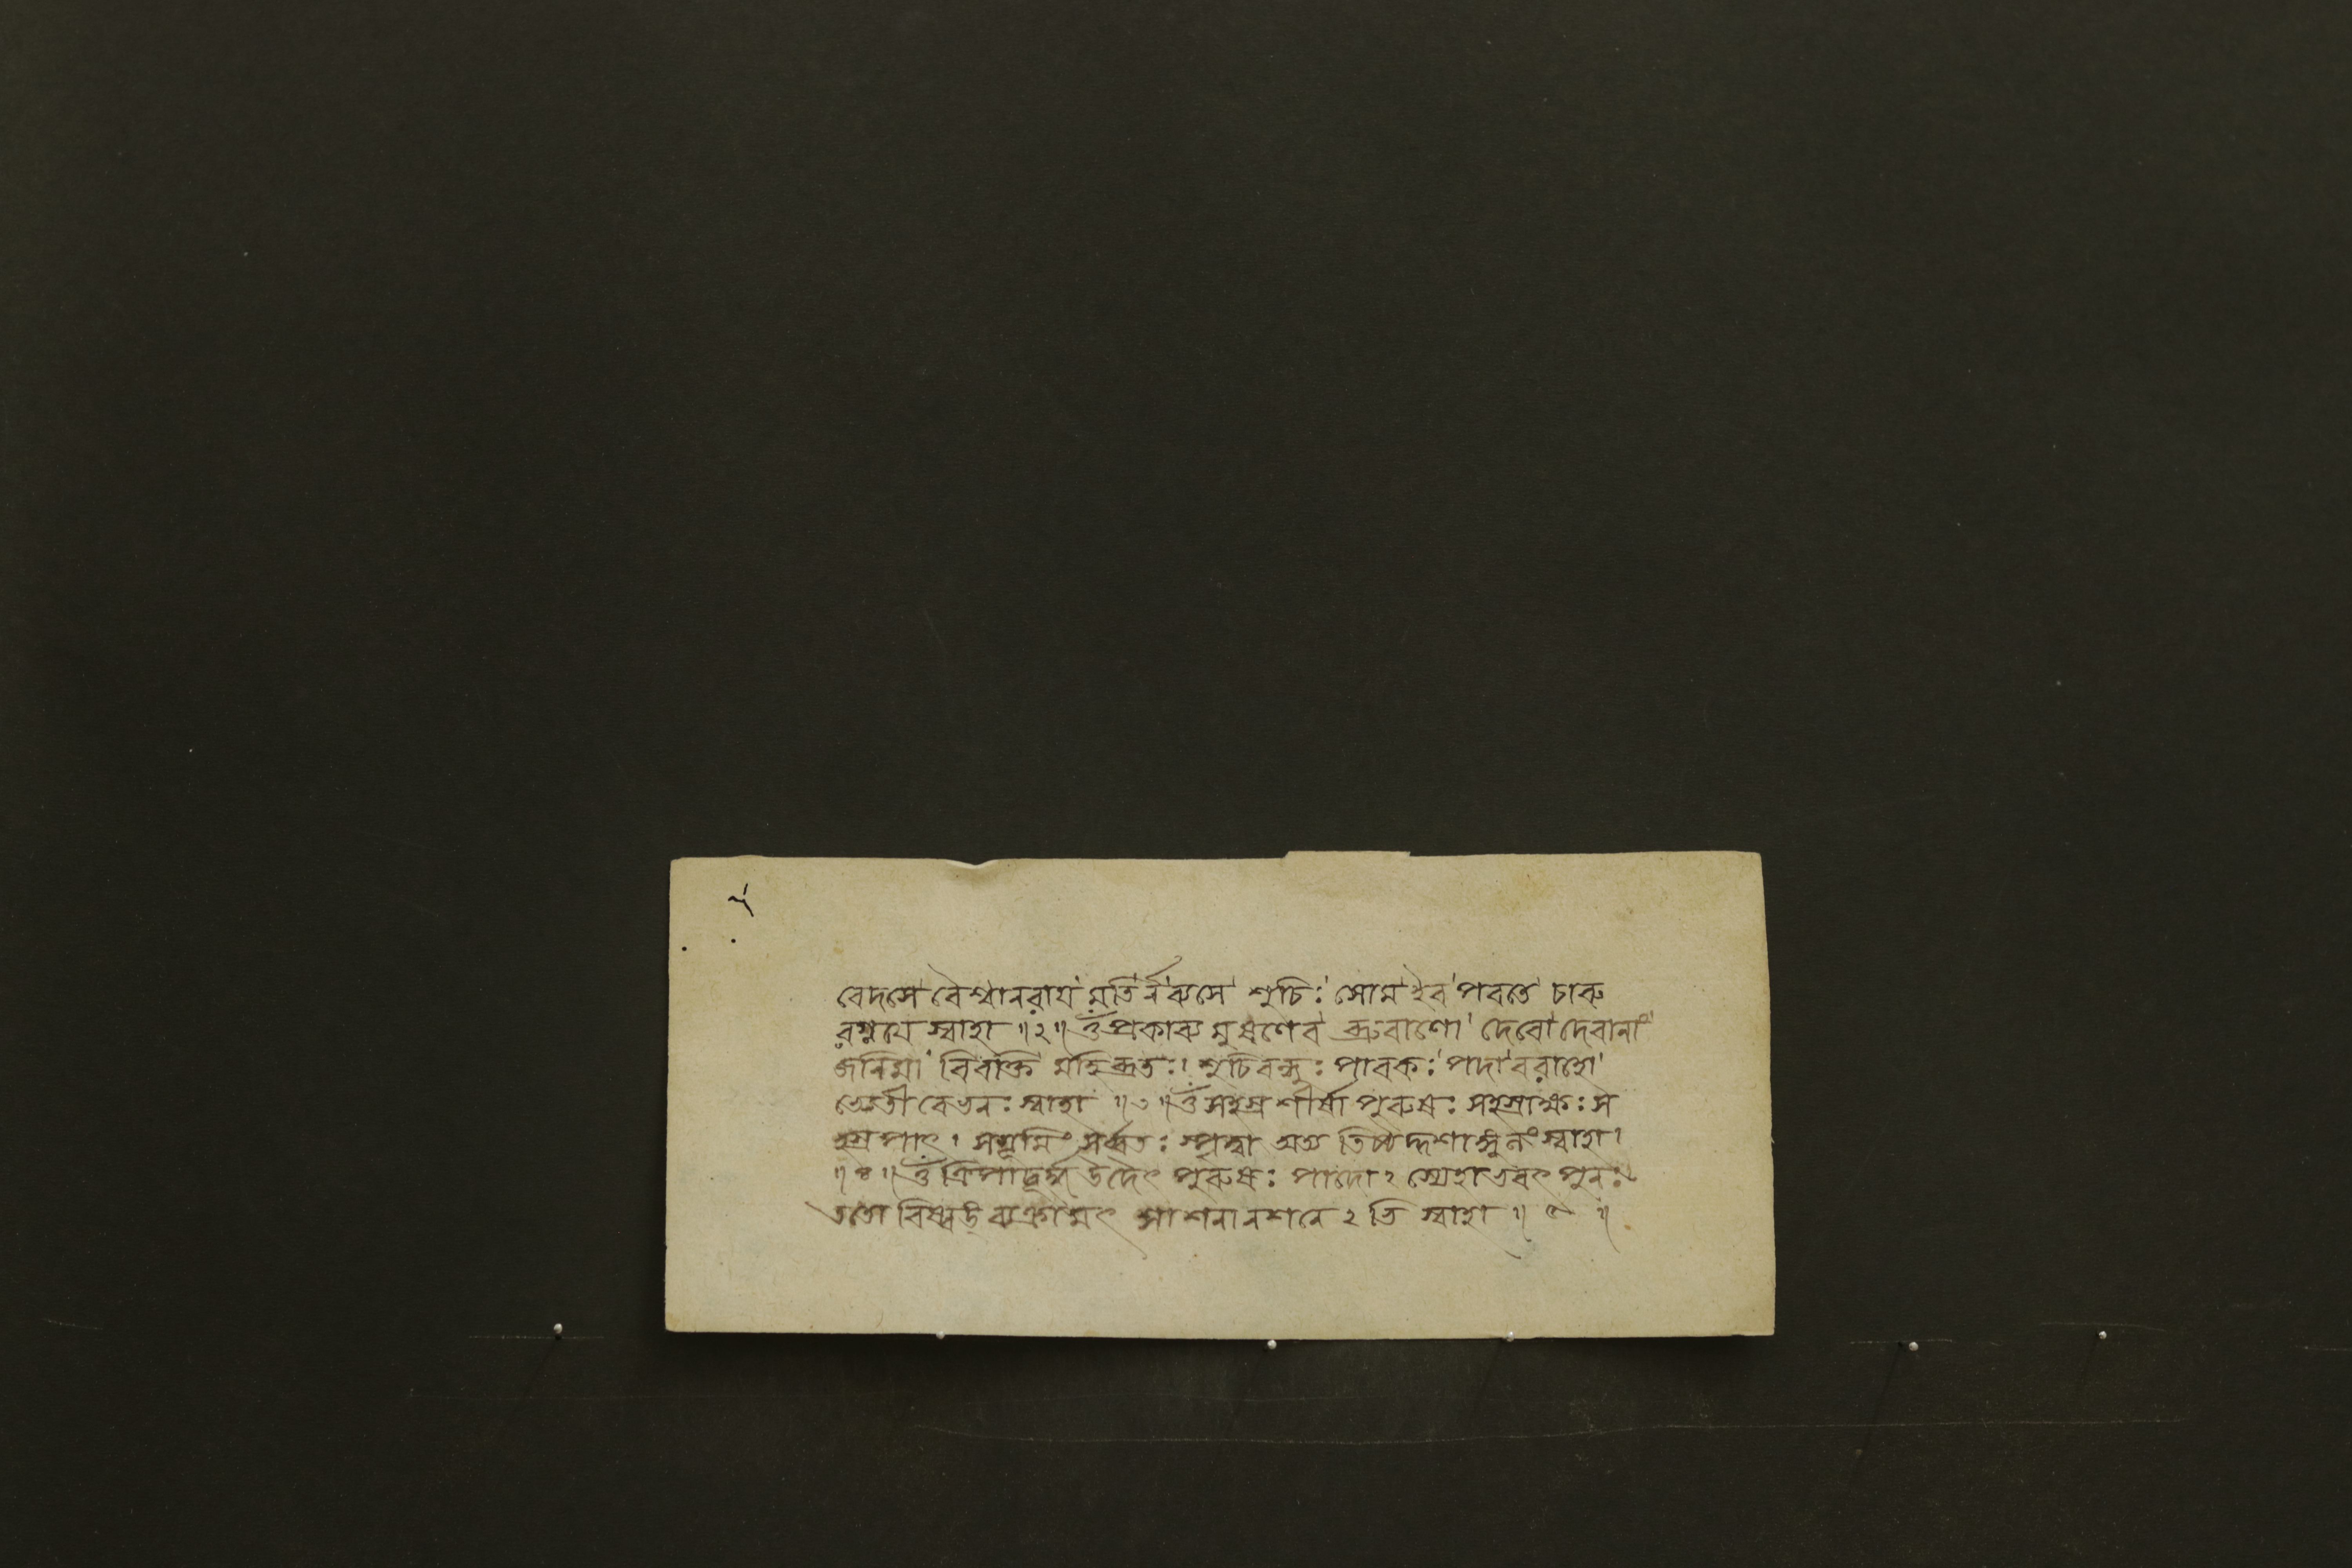 বেদসে বৈশ্বানরায় মতির্নব্যসে শুচিঃ সোম ইব পবতে চারু
রগ্নয়ে স্বাহা ॥ ২ ॥ ওঁ প্রকাব্য মুষণেব ব্রুবাণো দেবো দেবানাং
জনিমা বিবক্তি মহিব্রতঃ । শুচিবন্ধুঃ পাবকঃ পদা বরাহো
অভ্যেতী রেভনঃ স্বাহা ॥ ৩ ॥ ওঁ সহস্রশীর্ষা পুরুষঃ সহস্রাক্ষঃ স
হস্রপাৎ । সভূমিং সর্ব্বতঃ স্পৃত্বা অত্য তিষ্ঠদ্দশাঙ্গুলং স্বাহা ।
॥ ৪ ॥ ওঁ ত্রিপাদূর্দ্ধ উদৈৎ পুরুষঃ পাদোঽস্যেহাভবৎ পুনঃ
ততো বিষ্বঙ্ ব্যক্রামৎ সাশনানশনেঽতি স্বাহা ॥ ৫ ॥